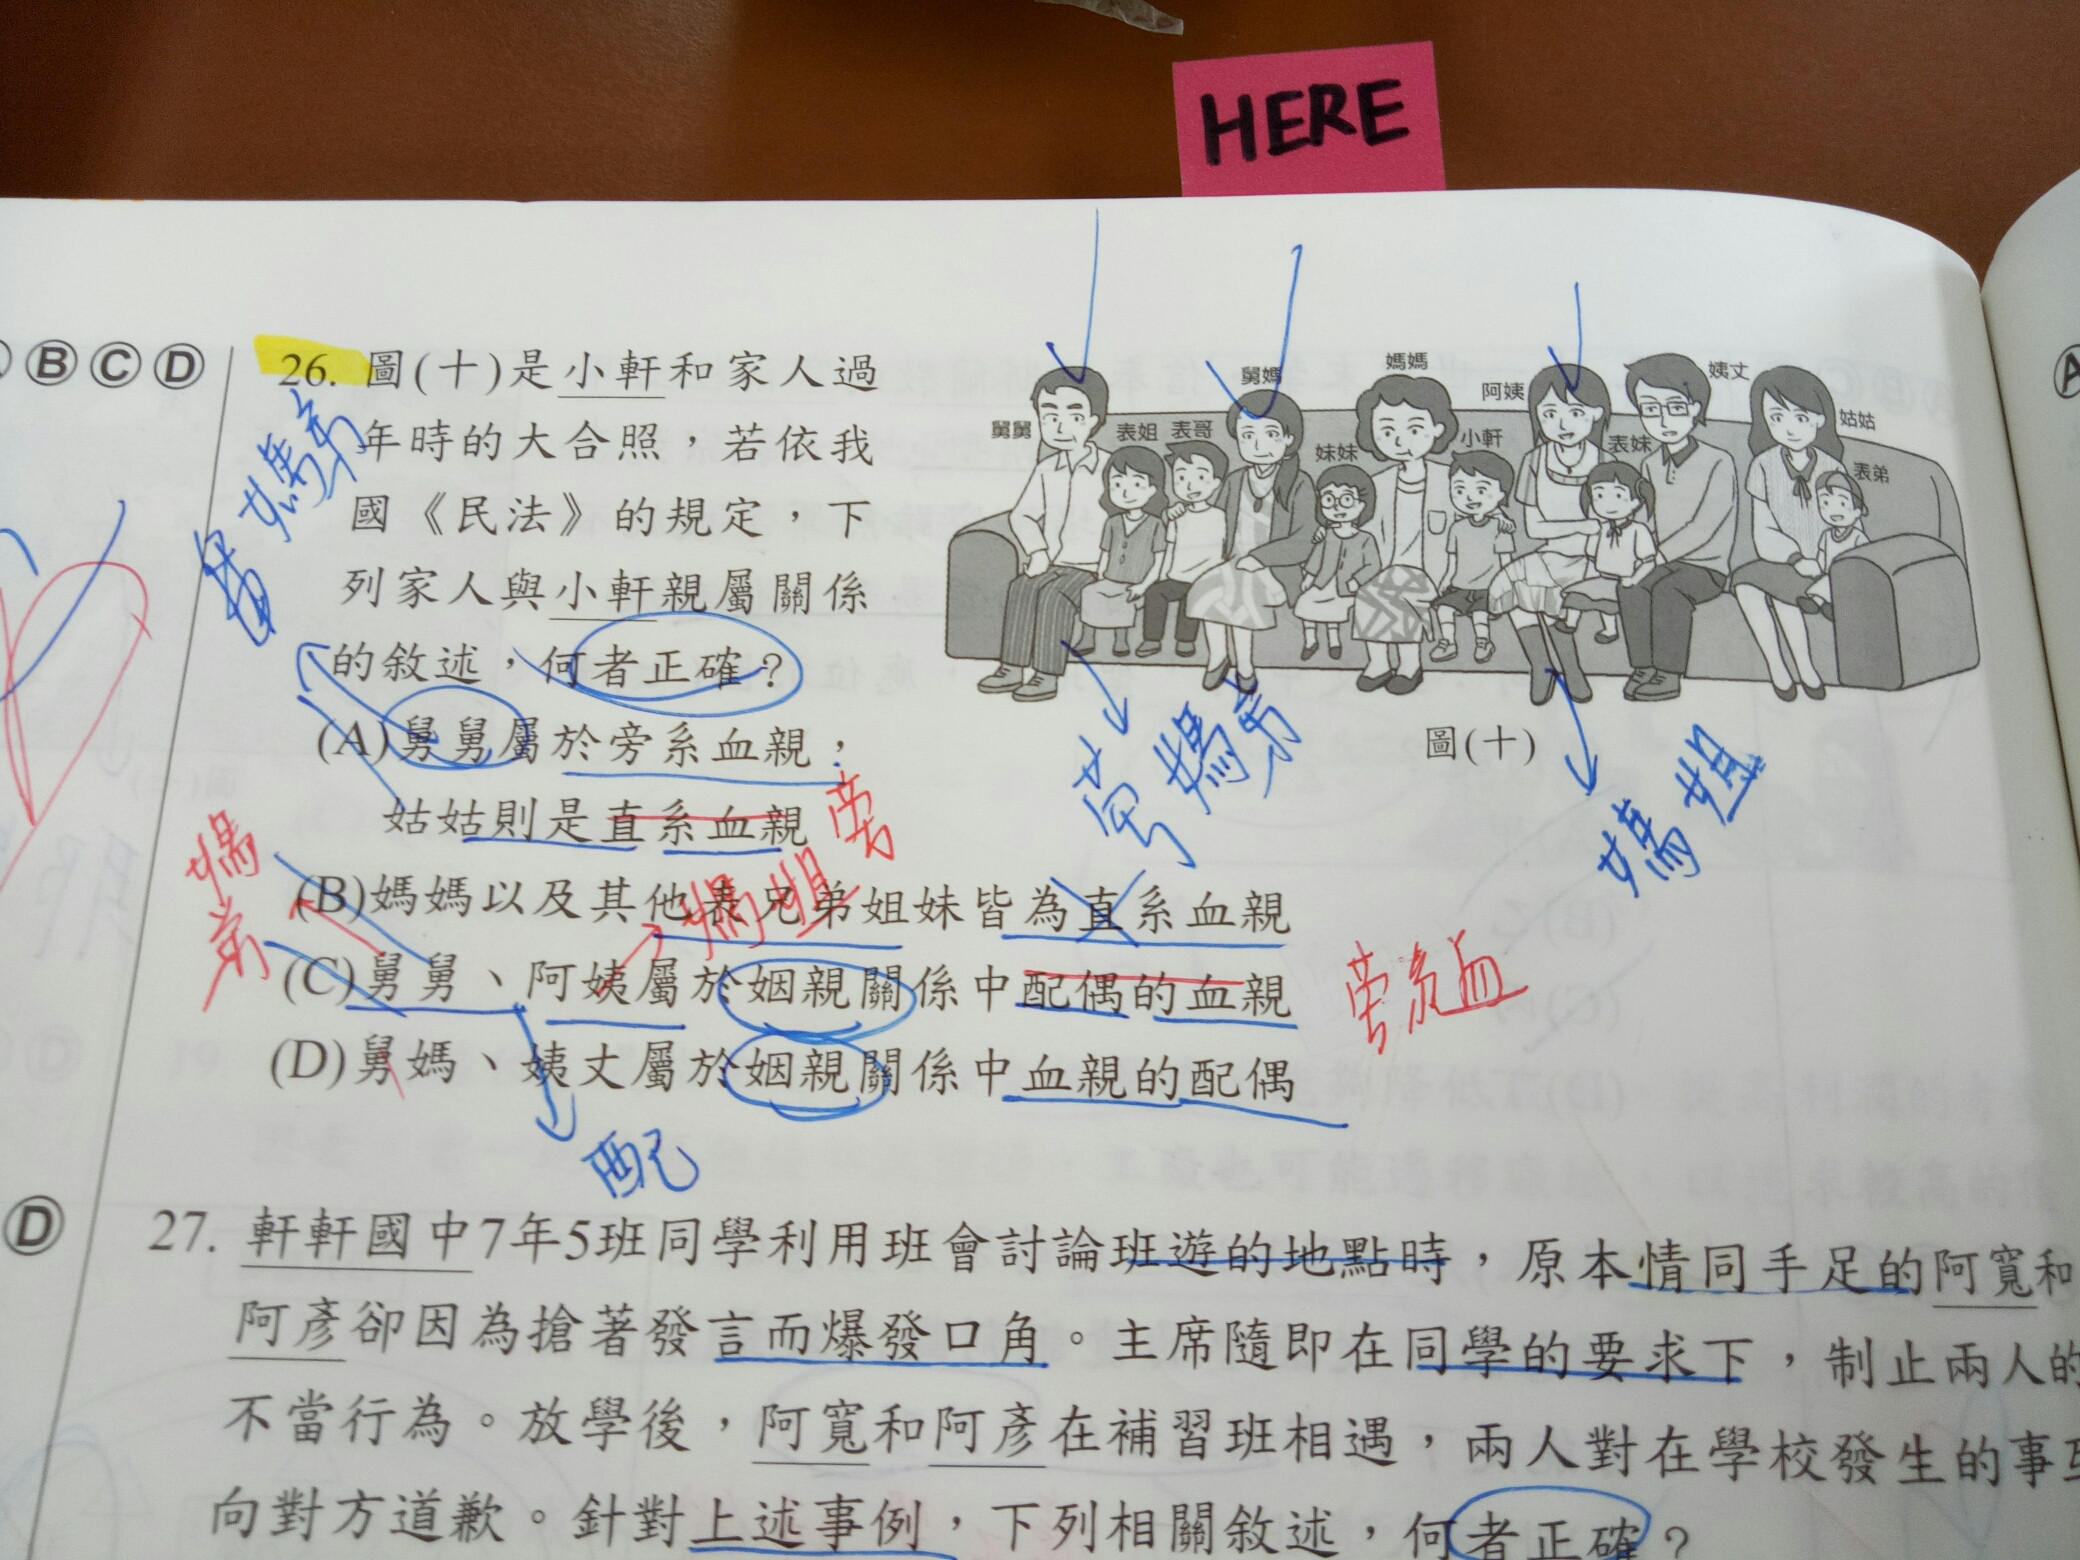 HERE
ⒷⒸⒹ
26. 圖(十)是小軒和家人過
年時的大合照，若依我
國《民法》的規定，下
列家人與小軒親屬關係
的敘述，何者正確？
(A)舅舅屬於旁系血親；
姑姑則是直系血親
旁
(B)媽媽以及其他表兄弟姐妹皆為直系血親
(C)舅舅、阿姨屬於姻親關係中配偶的血親
旁系血
(D)舅媽、姨丈屬於姻親關係中血親的配偶
配
媽弟
媽姐
舅舅
表姐
表哥
舅媽
妹妹
媽媽
小軒
阿姨
表妹
姨丈
姑姑
表弟
圖(十)
媽弟
媽姐
Ⓓ
27. 軒軒國中7年5班同學利用班會討論班遊的地點時，原本情同手足的阿寬和
阿彥卻因為搶著發言而爆發口角。主席隨即在同學的要求下，制止兩人的
不當行為。放學後，阿寬和阿彥在補習班相遇，兩人對在學校發生的事互
向對方道歉。針對上述事例，下列相關敘述，何者正確？